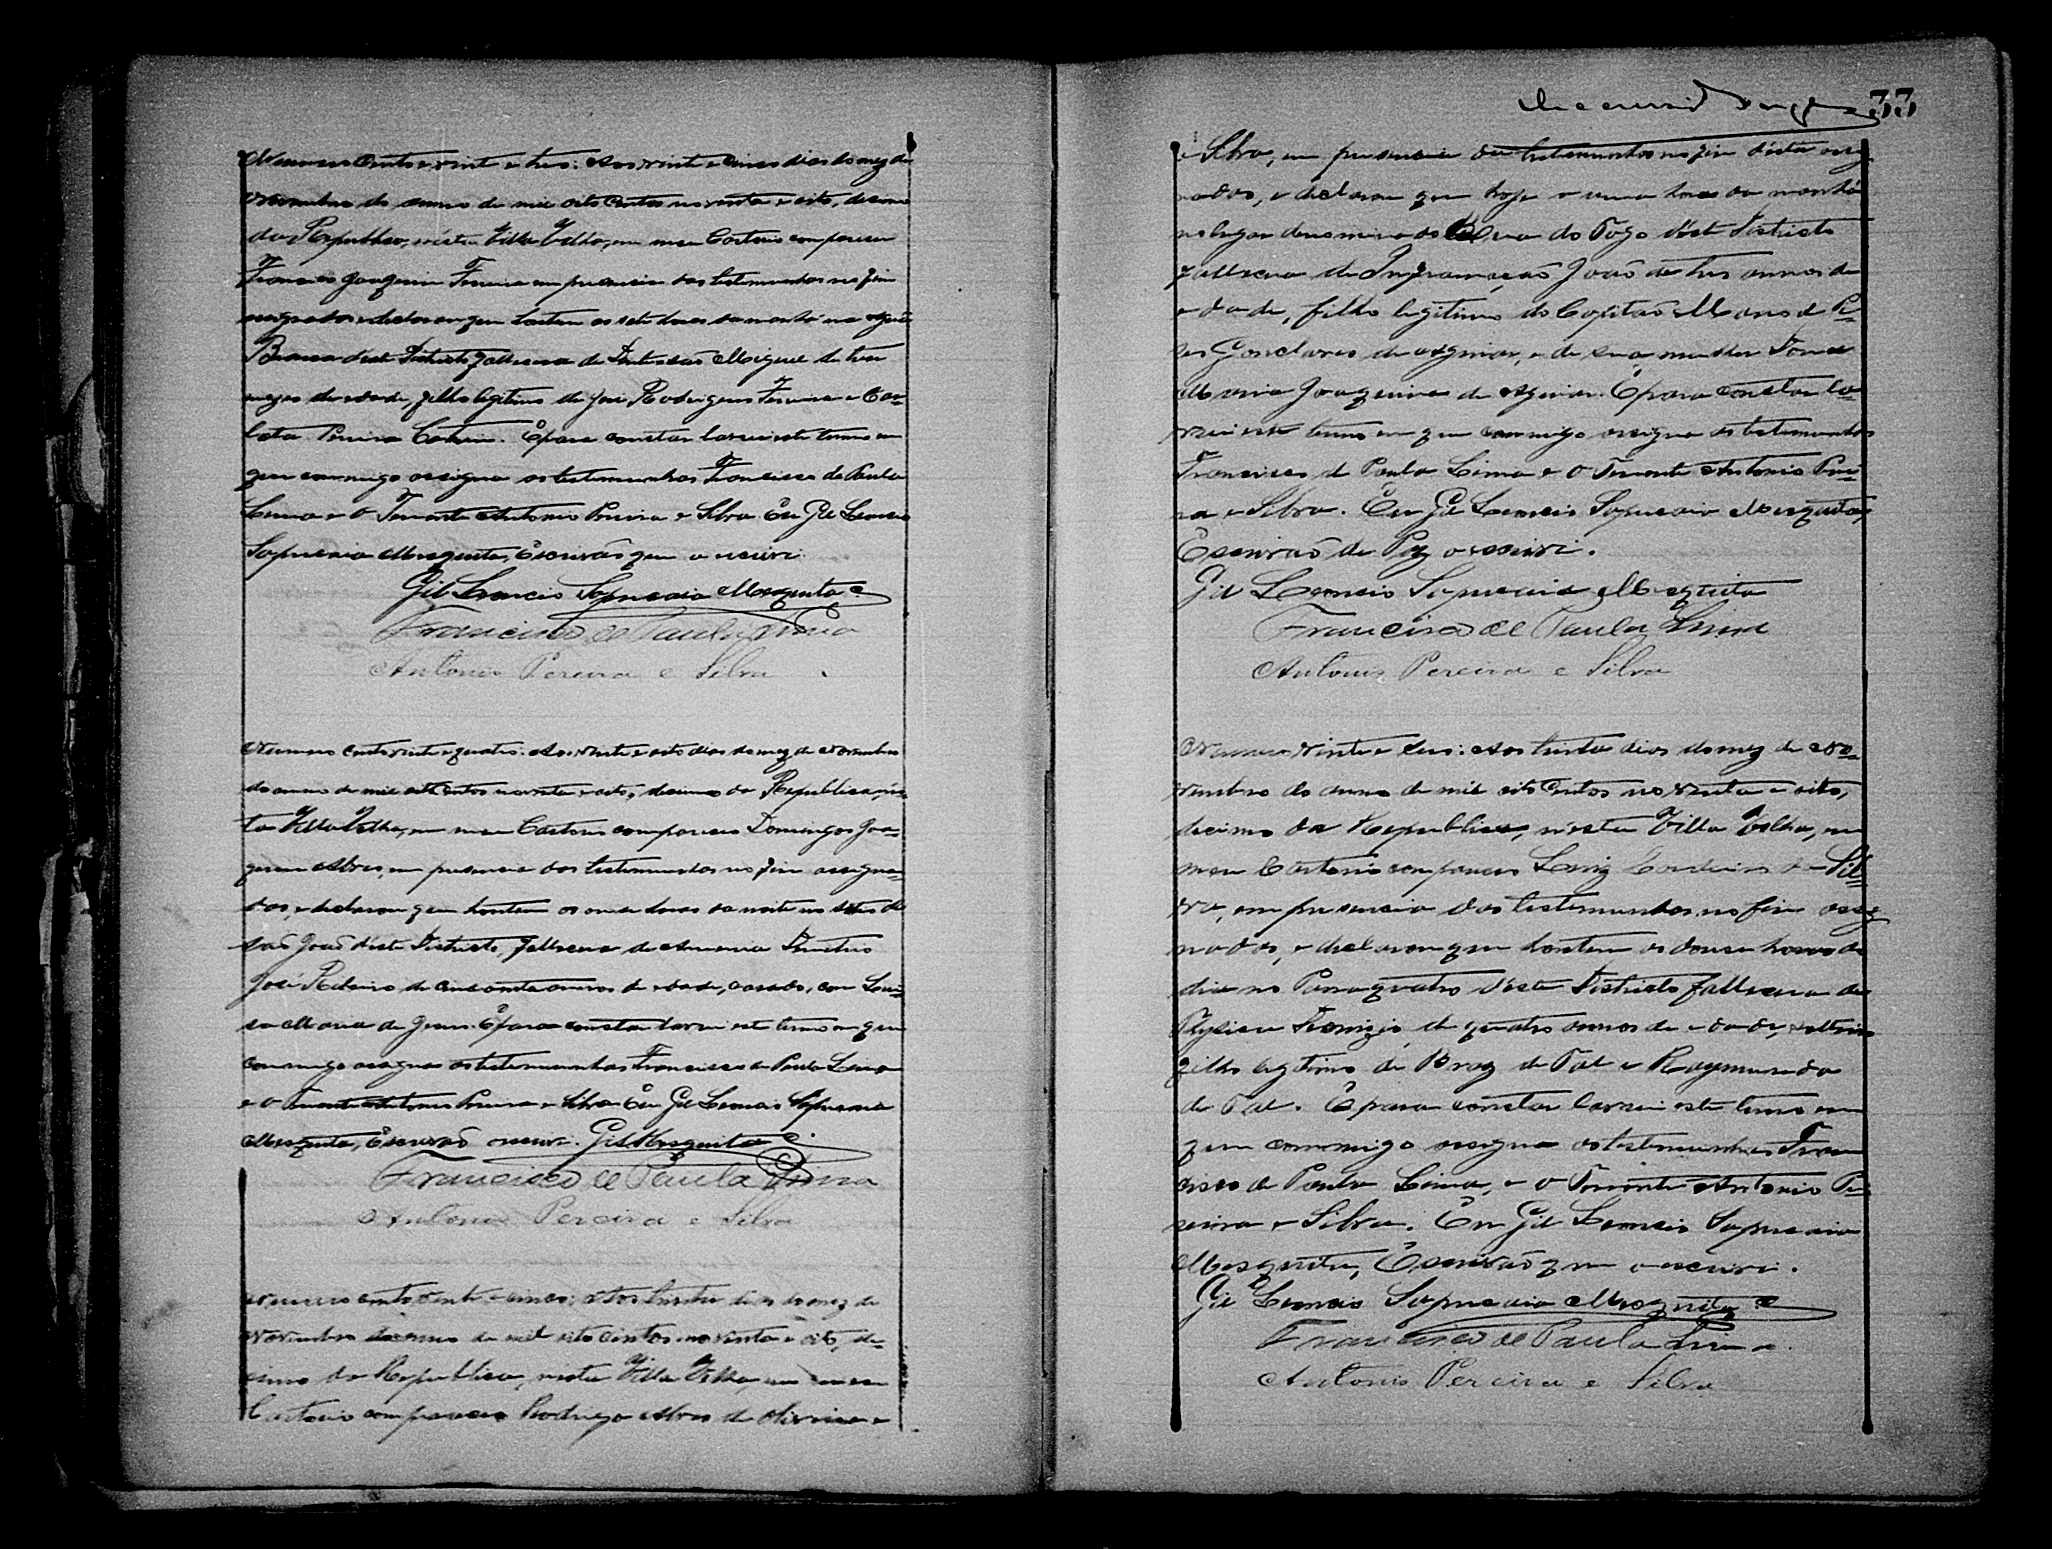 Numero cento e vinte e tres: Aos vinte e cinco dias do mez de
Novembro do anno de mil oito centos noventa e oito, decimo
da Republica, nésta Villa Velha, em meu Cartorio compareceu
Francisco Joaquim Ferreira em presencia das testemunhas no fim
assignadas e declarou que hontem as sete horas da manhã na
Branca deste Districto falleceu de Miguel de tres
mezes de edade, filho legitimo de José Rodrigues Ferreira e Car-
lota Pereira. E para constar lavrei este termo em
que commigo assigna as testemunhas Francisco de Paula
Lima e o Tenente Antonio Pereira e Silva Eu Gil Leoncio
Sapucaia Mesquita, Escrivão que o escrevi.
Gil Leoncio Sapucaia Mesquita
Francisco de Paula Lima
Antonio Pereira e Silva
Numero cento vinte e quatro: Aos vinte e oito dias do mez de Novembro
do anno de mil oito centos noventa e oito, decimo da Republica, nés-
ta Villa Velha, em meu Cartorio compareceu Domingos Joa-
quim Alves, em presencia das testemunhas no fim assigna-
das, e declarou que hontem as onze horas da noite no Sitio de
São João deste Districto, falleceu de
José Ribeiro de cincoenta annos de edade, casado, com Loui-
sa Maria de Jesus. E para constar lavrei este termo em que
commigo assigna as testemunhas Francisco de Paula Lima
e o Tenente Antonio Pereira e Silva Eu Gil Leoncio Sapucaia
Mesquita, Escrivão escrevi. Gil Mesquita
Francisco de Paula Lima
Antonio Pereira e Silva
Numero cento vinte e cinco: Aos trinta dias do mez de
Novembro do anno de mil oito centos noventa e oito, de-
cimo da Republica, nesta Villa Velha, em meu
Cartorio compareceu Rodrigo Alves de Oliveira e
33
e Silva, em presencia das testemunhas no fim désta assig
nadas, e declarou que hoje a uma hora da manhã
no lugar denominado do Poço déste Districto
falleceu de Inframação João de tres annos de
edade, filho legitimo do Capitão Manoel Pi-
res Gonclaves de Aguiar, e de sua mulher Dona
Maria Joaquina de Aguiar. E para constar la-
vrei este termo em que commigo assigna as testemunhas
Francisco de Paula Lima e o Tenente Antonio Perei-
ra e Silva. Eu Gil Leoncio Sapucaia Mesquita,
Escrivão de Paz o escrivi.
Gil Leoncio Sapucaia Mesquita
Francisco de Paula Lima
Antonio Pereira e Silva
Numero vinte e seis: Aos trinta dias do mez de No-
vembro do anno de mil oito centos noventa e oito,
decimo da Republica, nésta Villa Velha, em
meu Cartorio compareceu Luiz Cordeiro da Sil-
va, em presencia das testemunhas no fim assig
nadas, e declarou que hontem as douze horas do
dia no Passaquatro déste Districto falleceu de
de quatro annos de edade, solteiro
filho legitimo de Braz de Tal e Raymunda
de Tal. E para constar lavrei este termo em
que commigo assigna as testemunhas Fran
cisco de Paula Lima, e o Tenente Antonio Pe-
reira e Silva. Eu Gil Leoncio Sapucaia
Mesquita, Escrivão que o escrivi.
Gil Leoncio Sapucaia Mesquita
Francisco de Paula Lima
Antonio Pereira e Silva